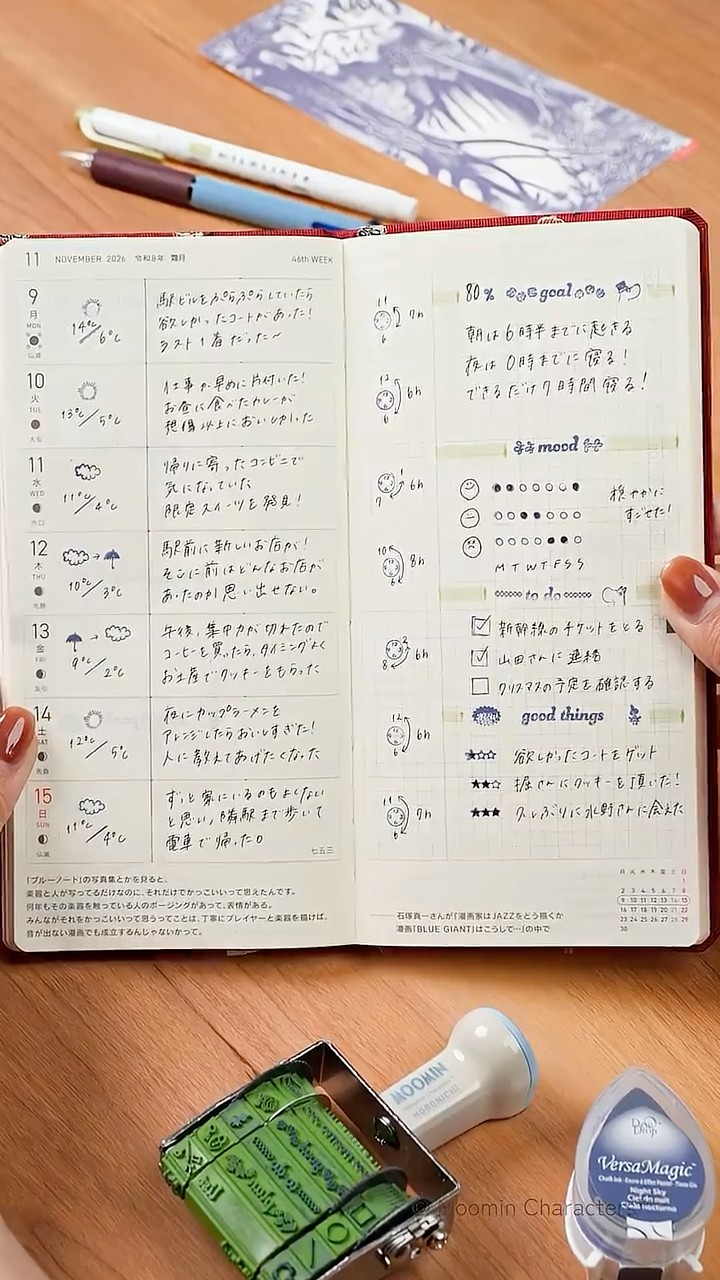 11 NOVEMBER 2026 令和8年 霜月 46th WEEK
9
月
MON
仏滅
14℃/6℃
駅ビルをぷらぷらしていたら
欲しかったコートがあった!
ラスト1着だった〜
10
火
TUE
大安
13℃/5℃
仕事が早めに片付いた!
お昼に食べたカレーが
想像以上においしかった
11
水
WED
赤口
11℃/4℃
帰りに寄ったコンビニで
気になっていた
限定スイーツを発見!
12
木
THU
先勝
10℃/3℃
駅前に新しいお店が!
そこに前はどんなお店が
あったのか思い出せない。
13
金
FRI
友引
9℃/2℃
午後、集中力が切れたので
コーヒーを買ったら、タイミングよく
お土産でクッキーをもらった
14
土
SAT
先負
12℃/5℃
夜にカップラーメンを
アレンジしたらおいしすぎた!
人に教えてあげたくなった
15
日
SUN
仏滅
11℃/4℃
ずっと家にいるのもよくない
と思い、隣駅まで歩いて
電車で帰った。
七五三
「ブルーノート」の写真集とかを見ると、
楽器と人が写ってるだけなのに、それだけでかっこいいって思えたんです。
何年もその楽器を触っている人のポージングがあって、表情がある。
みんながそれをかっこいいって思うってことは、丁寧にプレイヤーと楽器を描けば、
音が出ない漫画でも成立するんじゃないかって。
11
6
7h
12
6
6h
1
7
6h
10
6
8h
2
8
6h
12
6
6h
11
6
7h
80% goal
朝は6時半までに起きる
夜は0時までに寝る!
できるだけ7時間寝る!
mood
穏やかに
すごせた!
M T W T F S S
to do
新幹線のチケットをとる
山田さんに連絡
クリスマスの予定を確認する
good things
欲しかったコートをゲット
堀さんにクッキーを頂いた!
久しぶりに水野さんに会えた
石塚真一さんが「漫画家はJAZZをどう描くか
漫画『BLUE GIANT』はこうして…」の中で
月 火 水 木 金 土 日
1
2 3 4 5 6 7 8
9 10 11 12 13 14 15
16 17 18 19 20 21 22
23 24 25 26 27 28 29
30
MOOMIN
HOBONICHI
Dew Drop
VersaMagic
Chalk Ink
Night Sky
Ciel de nuit
Cielo nocturno
© Moomin Characters